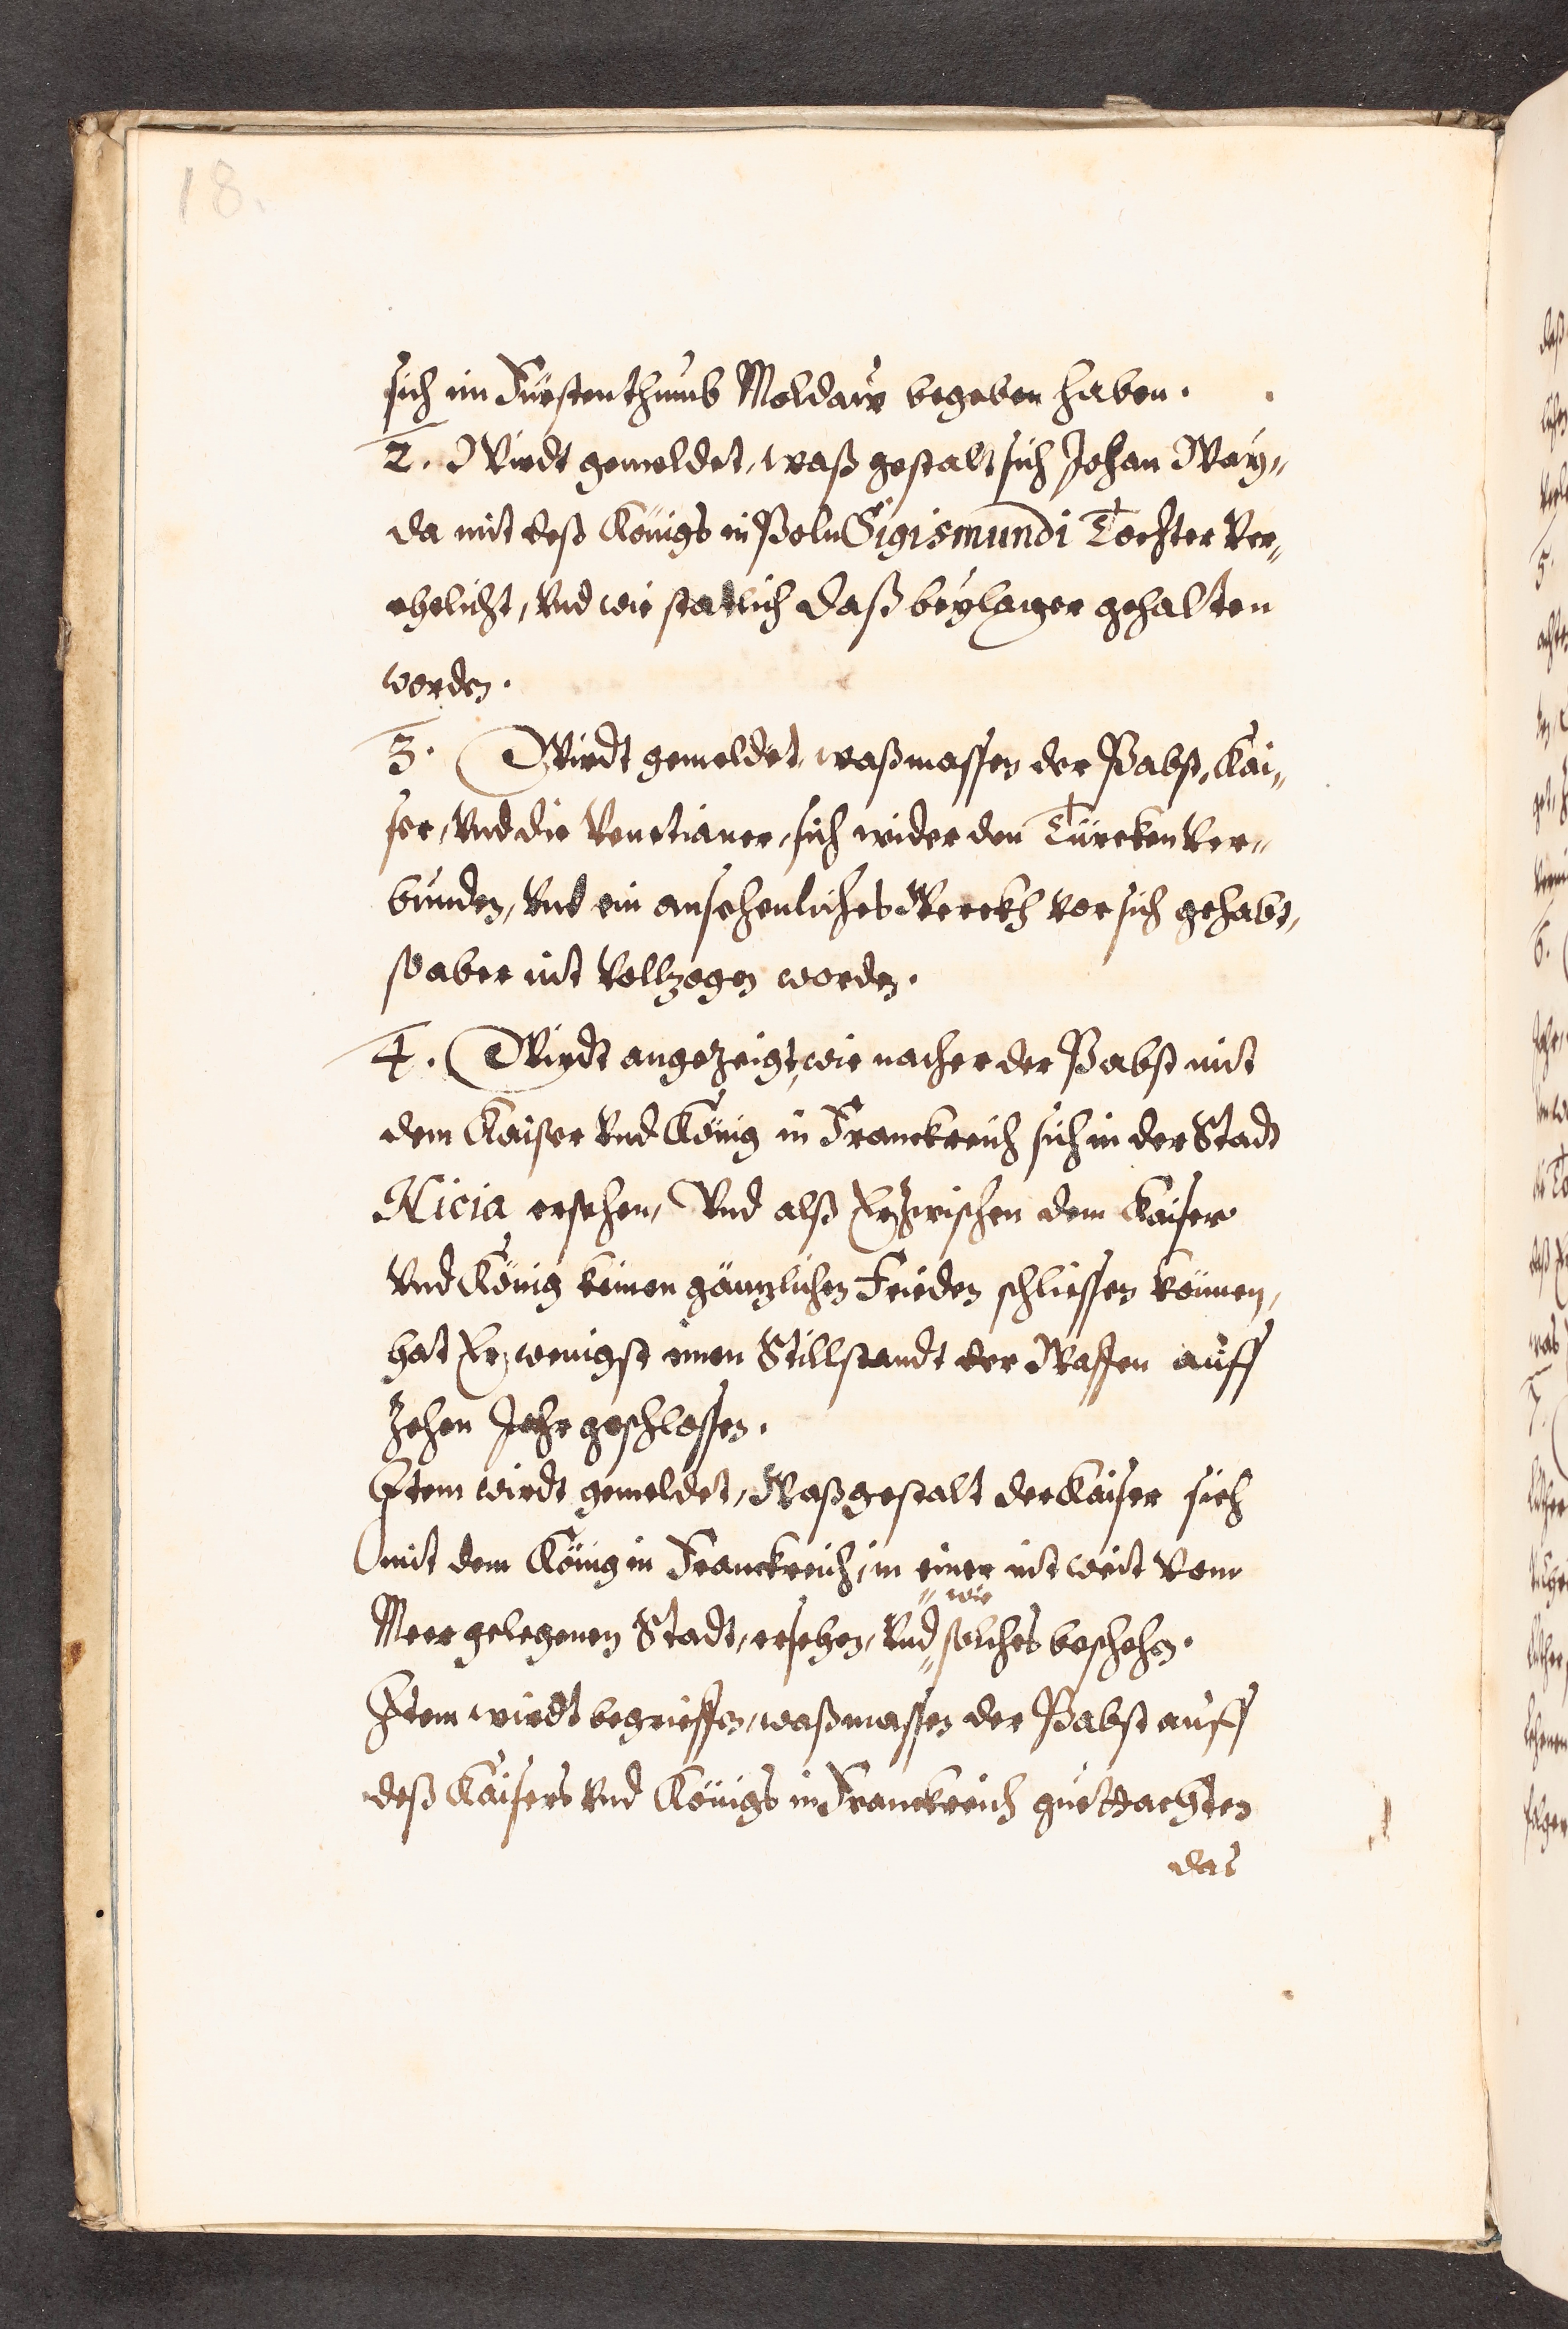 18.
sich im Fürstenthumb Moldaw begeben haben.
2. Wirdt gemeldet, waß gestalt sich Johan Waÿ„
da mit deß Königs in Poln Sigismundi Tochter Ver„
ehelicht, Vnd wie statlich daß beÿlager gehalten
worden.
3. Wirdt gemeldet, waßmassen der Pabst, Kai„
ser, Vnd die Venetianer, sich wider den Türcken Ver„
bunden, Vnd ein ansehenliches Werckh vor sich gehabt,
so aber nit Vollzogen worden.
4. Wirdt angezeigt, wie nacher der Pabst mit
dem Kaiser Vnd König in Franckreich sich in der Stadt
Nicia ersehen, Vnd alß Er zwischen dem Kaiser
Vnd König keinen gänzlichen Frieden schliessen können,
hat Er wenigst einen Stillstandt der Waffen auff
zehen Jahr geschlossen.
Item wirdt gemeldet, Waßgestalt der Kaiser sich
mit dem König in Franckreich, in einer nit weit vom
wie
Meer gelegenen Stadt, ersehen, Vnd solches beschehen.
Item wirdt begrieffen, waßmassen der Pabst auff
deß Kaisers Vnd Königs in Franckreich guettachten
das